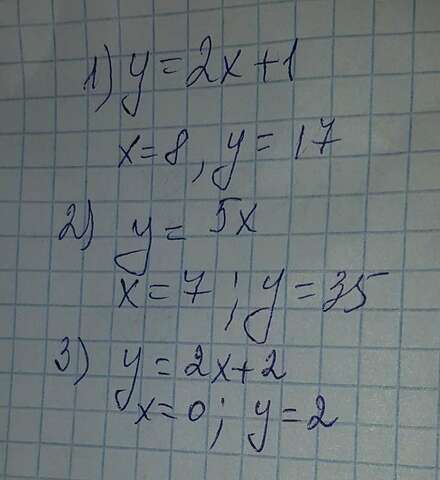 1) y = 2x + 1
x = 8, y = 17
2) y = 5x
x = 7; y = 35
3) y = 2x + 2
x = 0; y = 2